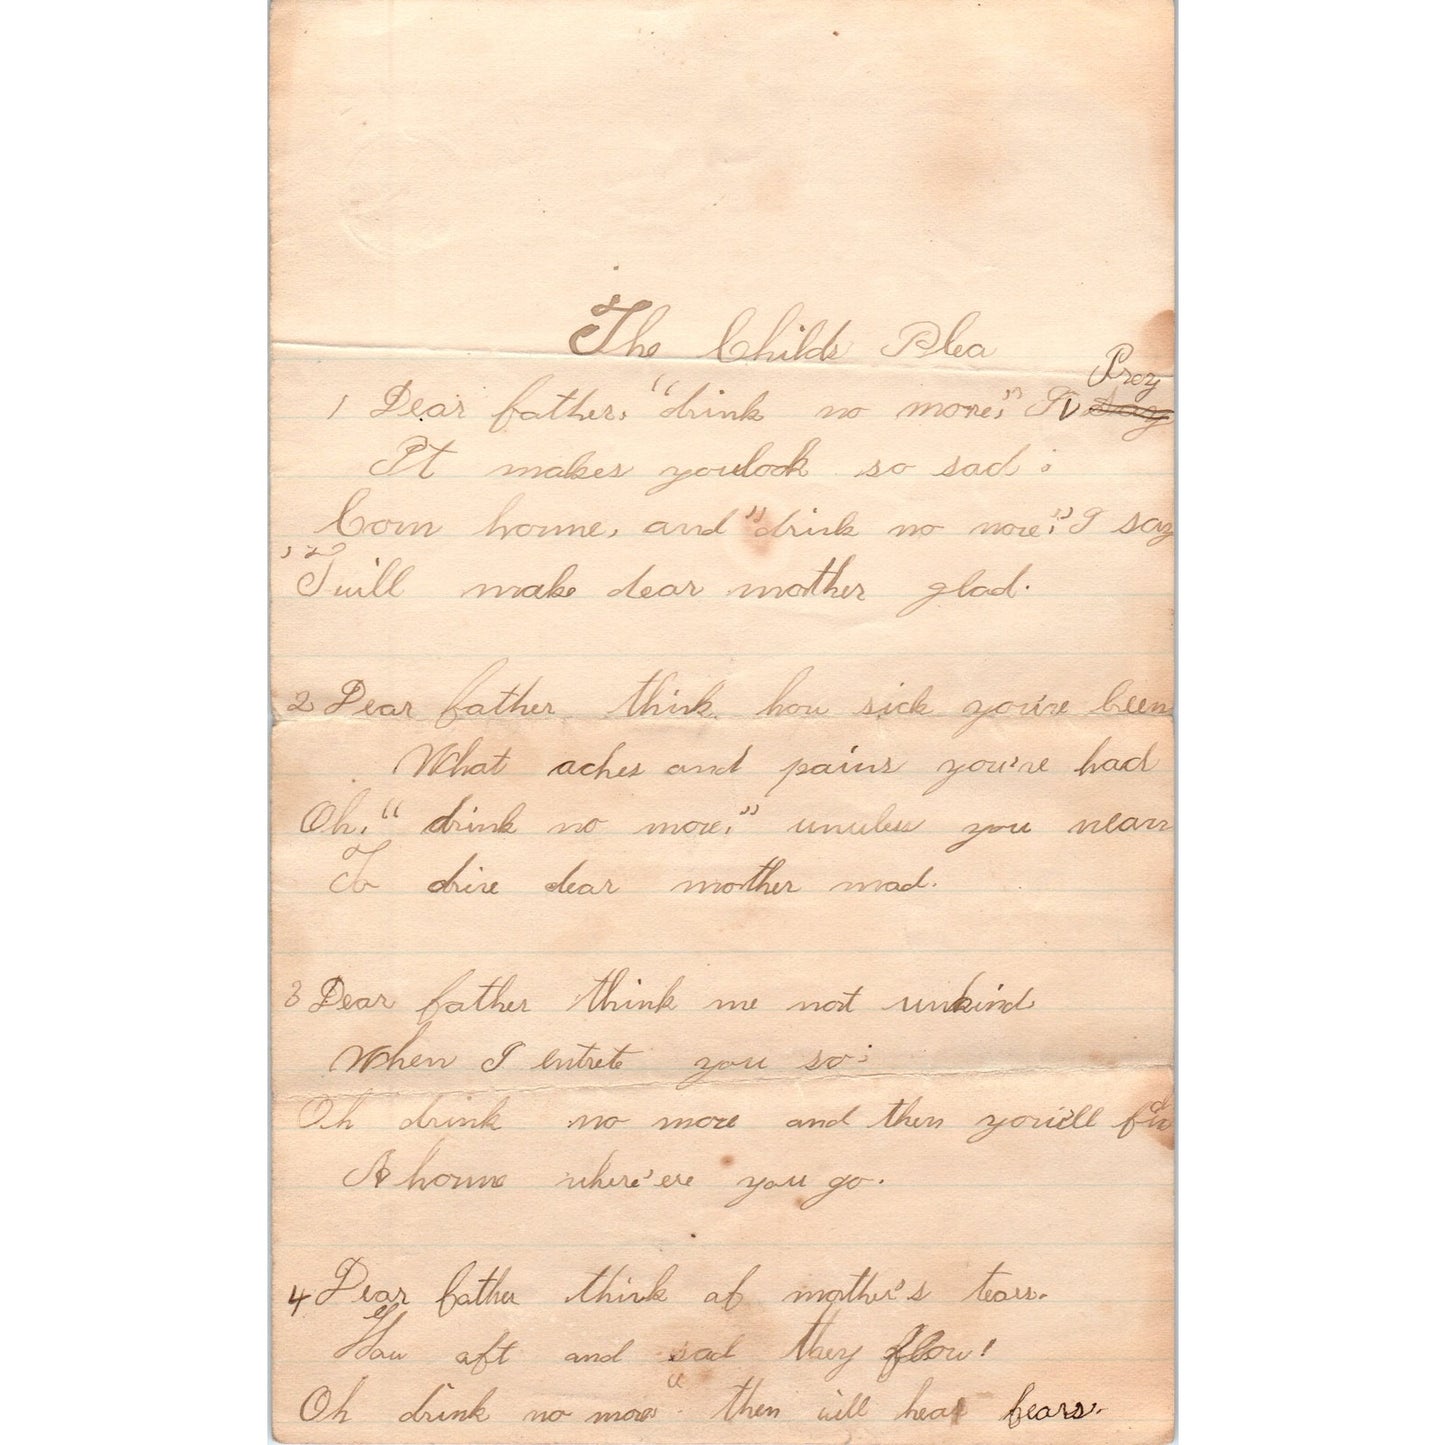 The Childs Plea
Pray
1 Dear father, "drink no more," I ~~say~~
It makes you look so sad;
Com home, and "drink no more," I say
'Twill make dear mother glad.
2 Dear father think how sick you've been
What aches and pains you've had
Oh, "drink no more," unless you mean
To drive dear mother mad.
3 Dear father think me not unkind
When I entrete you so;
Oh drink no more and then you'll find
A home where'ere you go.
4 Dear father think of mother's tears.
How oft and sad they flow!
Oh drink no more" then will her fears.